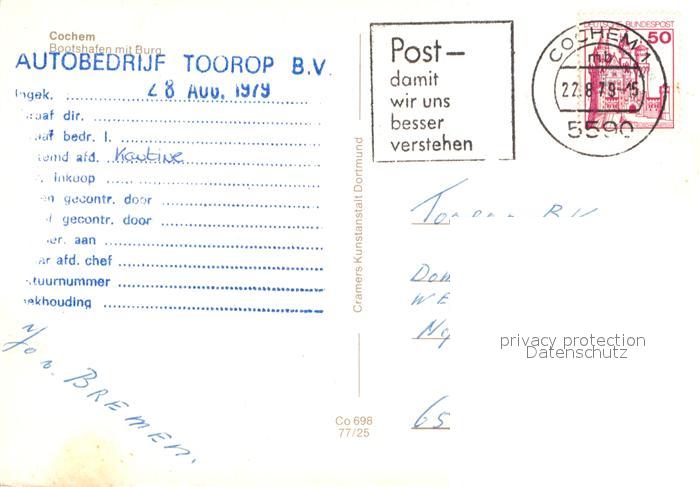 Cochem
Bootshafen mit Burg
AUTOBEDRIJF TOOROP B.V.
28 AUG. 1979
Ingek.
raaf dir.
raaf bedr. l.
temd afd. Kantine
inkoop
en gecontr. door
f gecontr. door
er. aan
ar afd. chef
tuurnummer
ekhouding
v/or. BREMEN.
Cramers Kunstanstalt Dortmund
Co 698
77/25
Post-
damit
wir uns
besser
verstehen
DEUTSCHE BUNDESPOST
50
COCHEM 1
mb
22.8.79-15
5590
Don
WE
Ny
65
privacy protection
Datenschutz